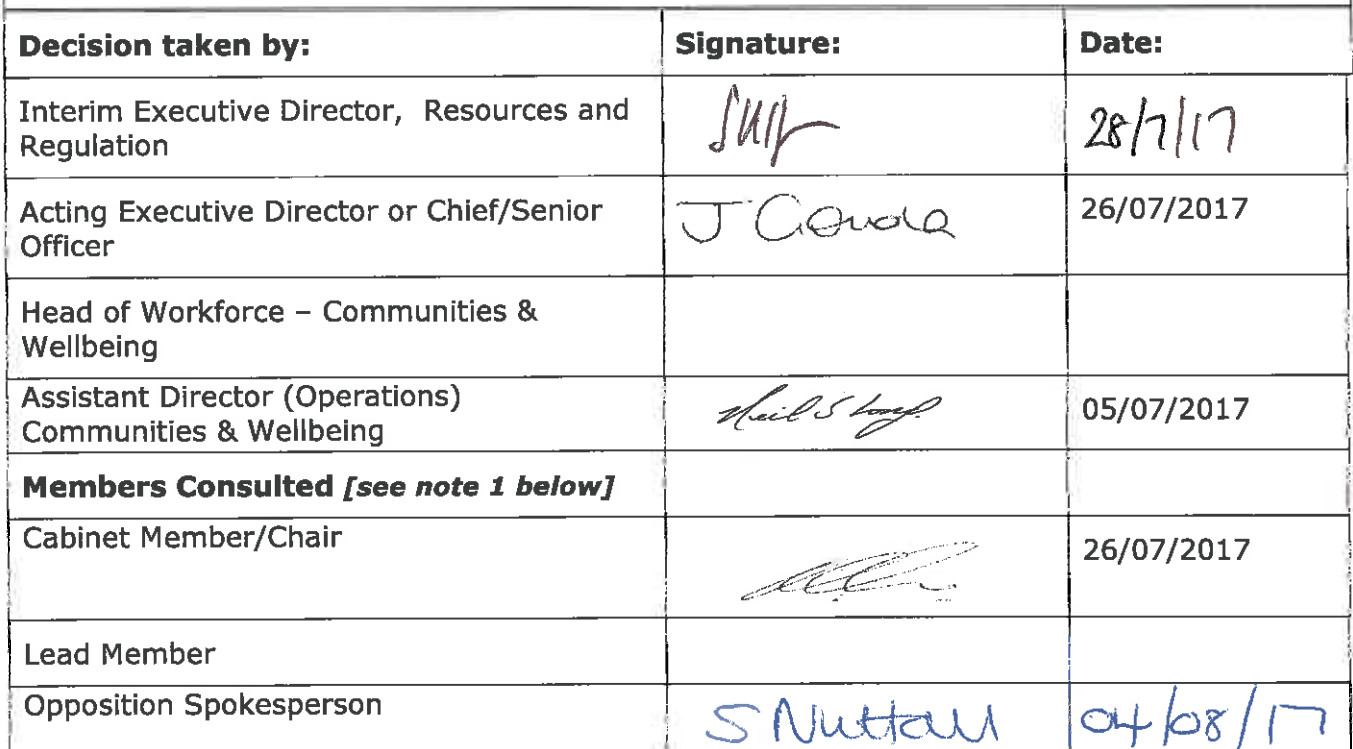 Decision taken by: Signature: Date:
Interim Executive Director, Resources and
Regulation
28/7/17
Acting Executive Director or Chief/Senior
Officer
J Gonda 26/07/2017
Head of Workforce – Communities &
Wellbeing
Assistant Director (Operations)
Communities & Wellbeing
05/07/2017
Members Consulted [see note 1 below]
Cabinet Member/Chair
26/07/2017
Lead Member
Opposition Spokesperson
S Nuttall 04/08/17